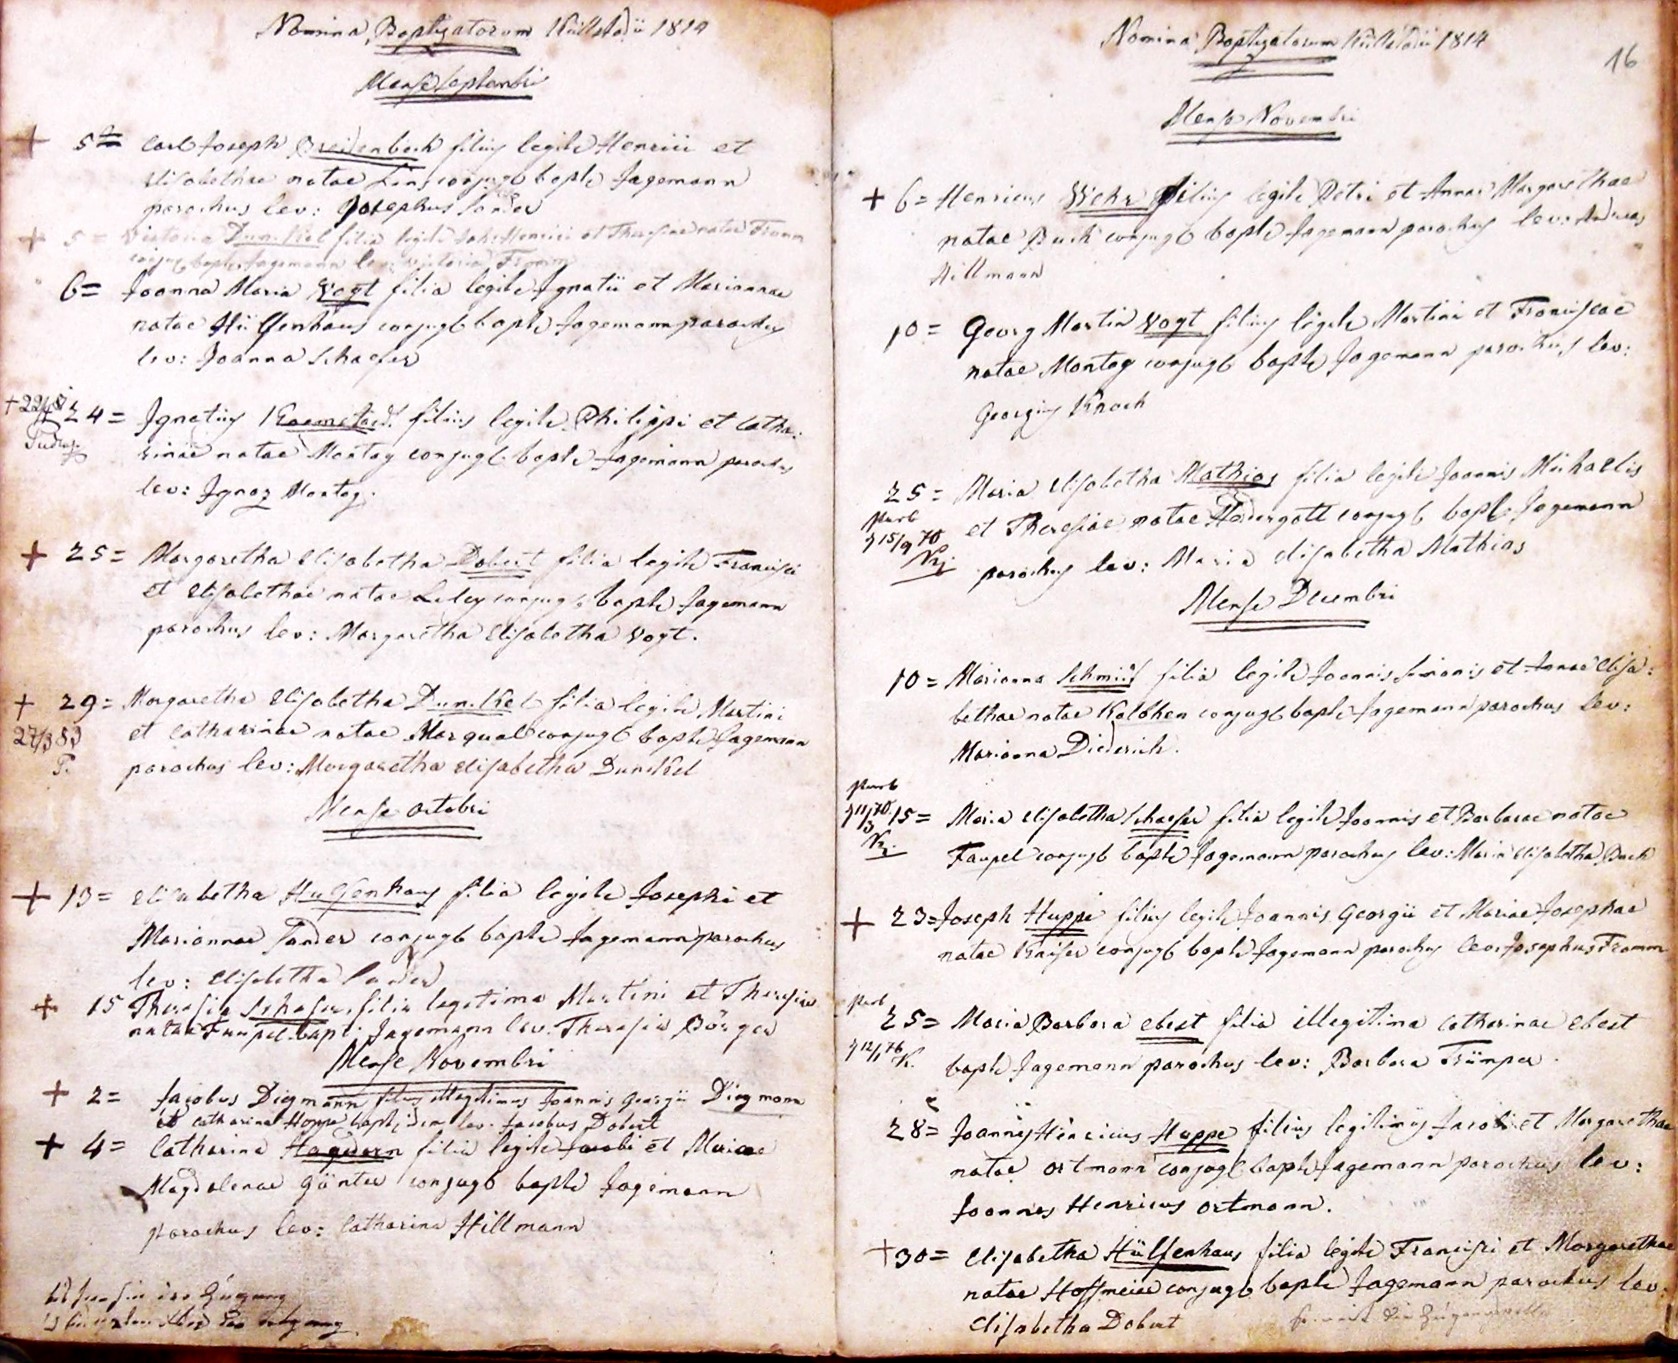 Nomina Baptizatorum Küllstadii 1814
Mense Septembri
+ 5ta Carl Joseph Breitenbach filius legit Henrici et
Elisabethae natae conjug bapt Jagemann
parochus lev: Josephus Sander
+ 5 = Victoria Dunckel filia legit Joh: Henrici et Theresiae natae Fromm
conjug bapt Jagemann lev: Victoria Fromm
6 = Joanna Maria Vogt filia legit Ignatii et Mariannae
natae Hülfenhaus conjugb bapt Jagemann parochus
lev: Joanna Schaefer
24 = Ignatius filius legit Philippi et Catha:
rinae natae Montag conjugb bapt Jagemann parochus
lev: Ignaz Montag.
+ 25 = Margaretha Elisabetha Dobert filia legit Francisci
et Elisabethae natae conjug bapt Jagemann
parochus lev: Margaretha Elisabetha Vogt.
+ 29 = Margaretha Elisabetha Dunckel filia legit Martini
27/3 83 et Catharinae natae Marquad conjugb bapt Jagemann
parochus lev: Margaretha Elisabetha Dunckel
Mense Octobri
+ 13 = Elisabetha Hülfenhaus filia legit Josephi et
Mariannae Sander conjugb bapt Jagemann parochus
lev: Elisabetha Sander
+ 15 Theresia Schafer filia legitima Martini et Theresiae
natae Faupel bapt: Jagemann lev. Theresia Börger
Mense Novembri
+ 2 = Jacobus Diegmann filius illegitimus Joannis Georgii Diegmann
et Catharina Hoppe bapt: idem lev: Jacobus Dobert
+ 4 = Catharina Hagedorn filia legit Jacobi et Mariae
Magdalenae Günter conjugb bapt Jagemann
parochus lev: Catharina Hillmann
Nomina Baptizatorum Küllstadii 1814
16
Mense Novembri
+ 6 = Henricus Wehr filius legit Petri et Annae Margarethae
natae Buch conjugb bapt Jagemann parochus lev: Andreas
Hillmann
10 = Georg Martin Vogt filius legit Martini et Franciscae
natae Montag conjugb bapt Jagemann parochus lev:
Georgius Knoch
25 = Maria Elisabetha Mathias filia legit Joannis Michaelis
15/9 70 et Theresiae natae Hadergott conjugb bapt Jagemann
parochus lev: Maria Elisabetha Mathias
Mense Decembri
10 = Marianna Schmid filia legit Joannis Simonis et Annae Elisa:
bethae natae Kolbhen conjugb bapt Jagemann parochus lev:
Marianna Diederich.
15 = Maria Elisabetha Schaefer filia legit Joannis et Barbarae natae
Faupel conjugb bapt Jagemann parochus lev: Maria Elisabetha Buch
+ 23 = Joseph Huppe filius legit Joannis Georgii et Mariae Josephae
natae Kaiser conjugb bapt Jagemann parochus lev: Josephus Fromm
25 = Maria Barbara Ebert filia illegitima Catharinae Ebert
bapt Jagemann parochus lev: Barbara Trümper.
28 = Joannes Henricus Huppe filius legitimus Jacobi et Margarethae
natae Ortmann conjugb bapt Jagemann parochus lev:
Joannes Henricus Ortmann.
+ 30 = Elisabetha Hülfenhaus filia legit Francisci et Margarethae
natae Hoffmeier conjugb bapt Jagemann parochus lev:
Elisabetha Dobert